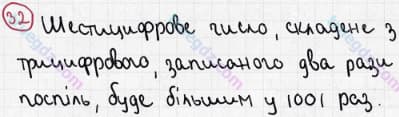 32 Шестицифрове число, складене з
трицифрового, записаного два рази
поспіль, буде більшим у 1001 раз.